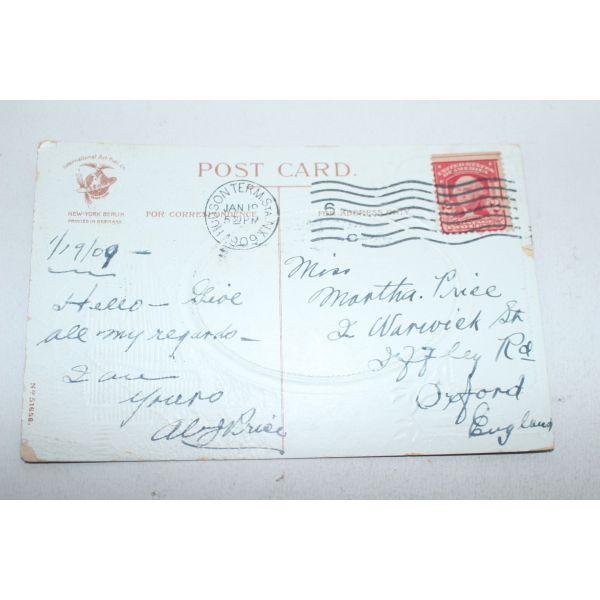 International Art Pub. Co.
NEW-YORK BERLIN
PRINTED IN GERMANY
POST CARD.
FOR CORRESPONDENCE
FOR ADDRESS ONLY
HUDSON TERM. STA. N.Y.
JAN 19
5 PM
1909
6
C
UNITED STATES
OF AMERICA
1/19/09 -
Hello - Give
all my regards -
I am
Yours
Al J Price
Miss
Martha. Price
2 Warwick St
Iffley Rd
Oxford
England
No 51656.